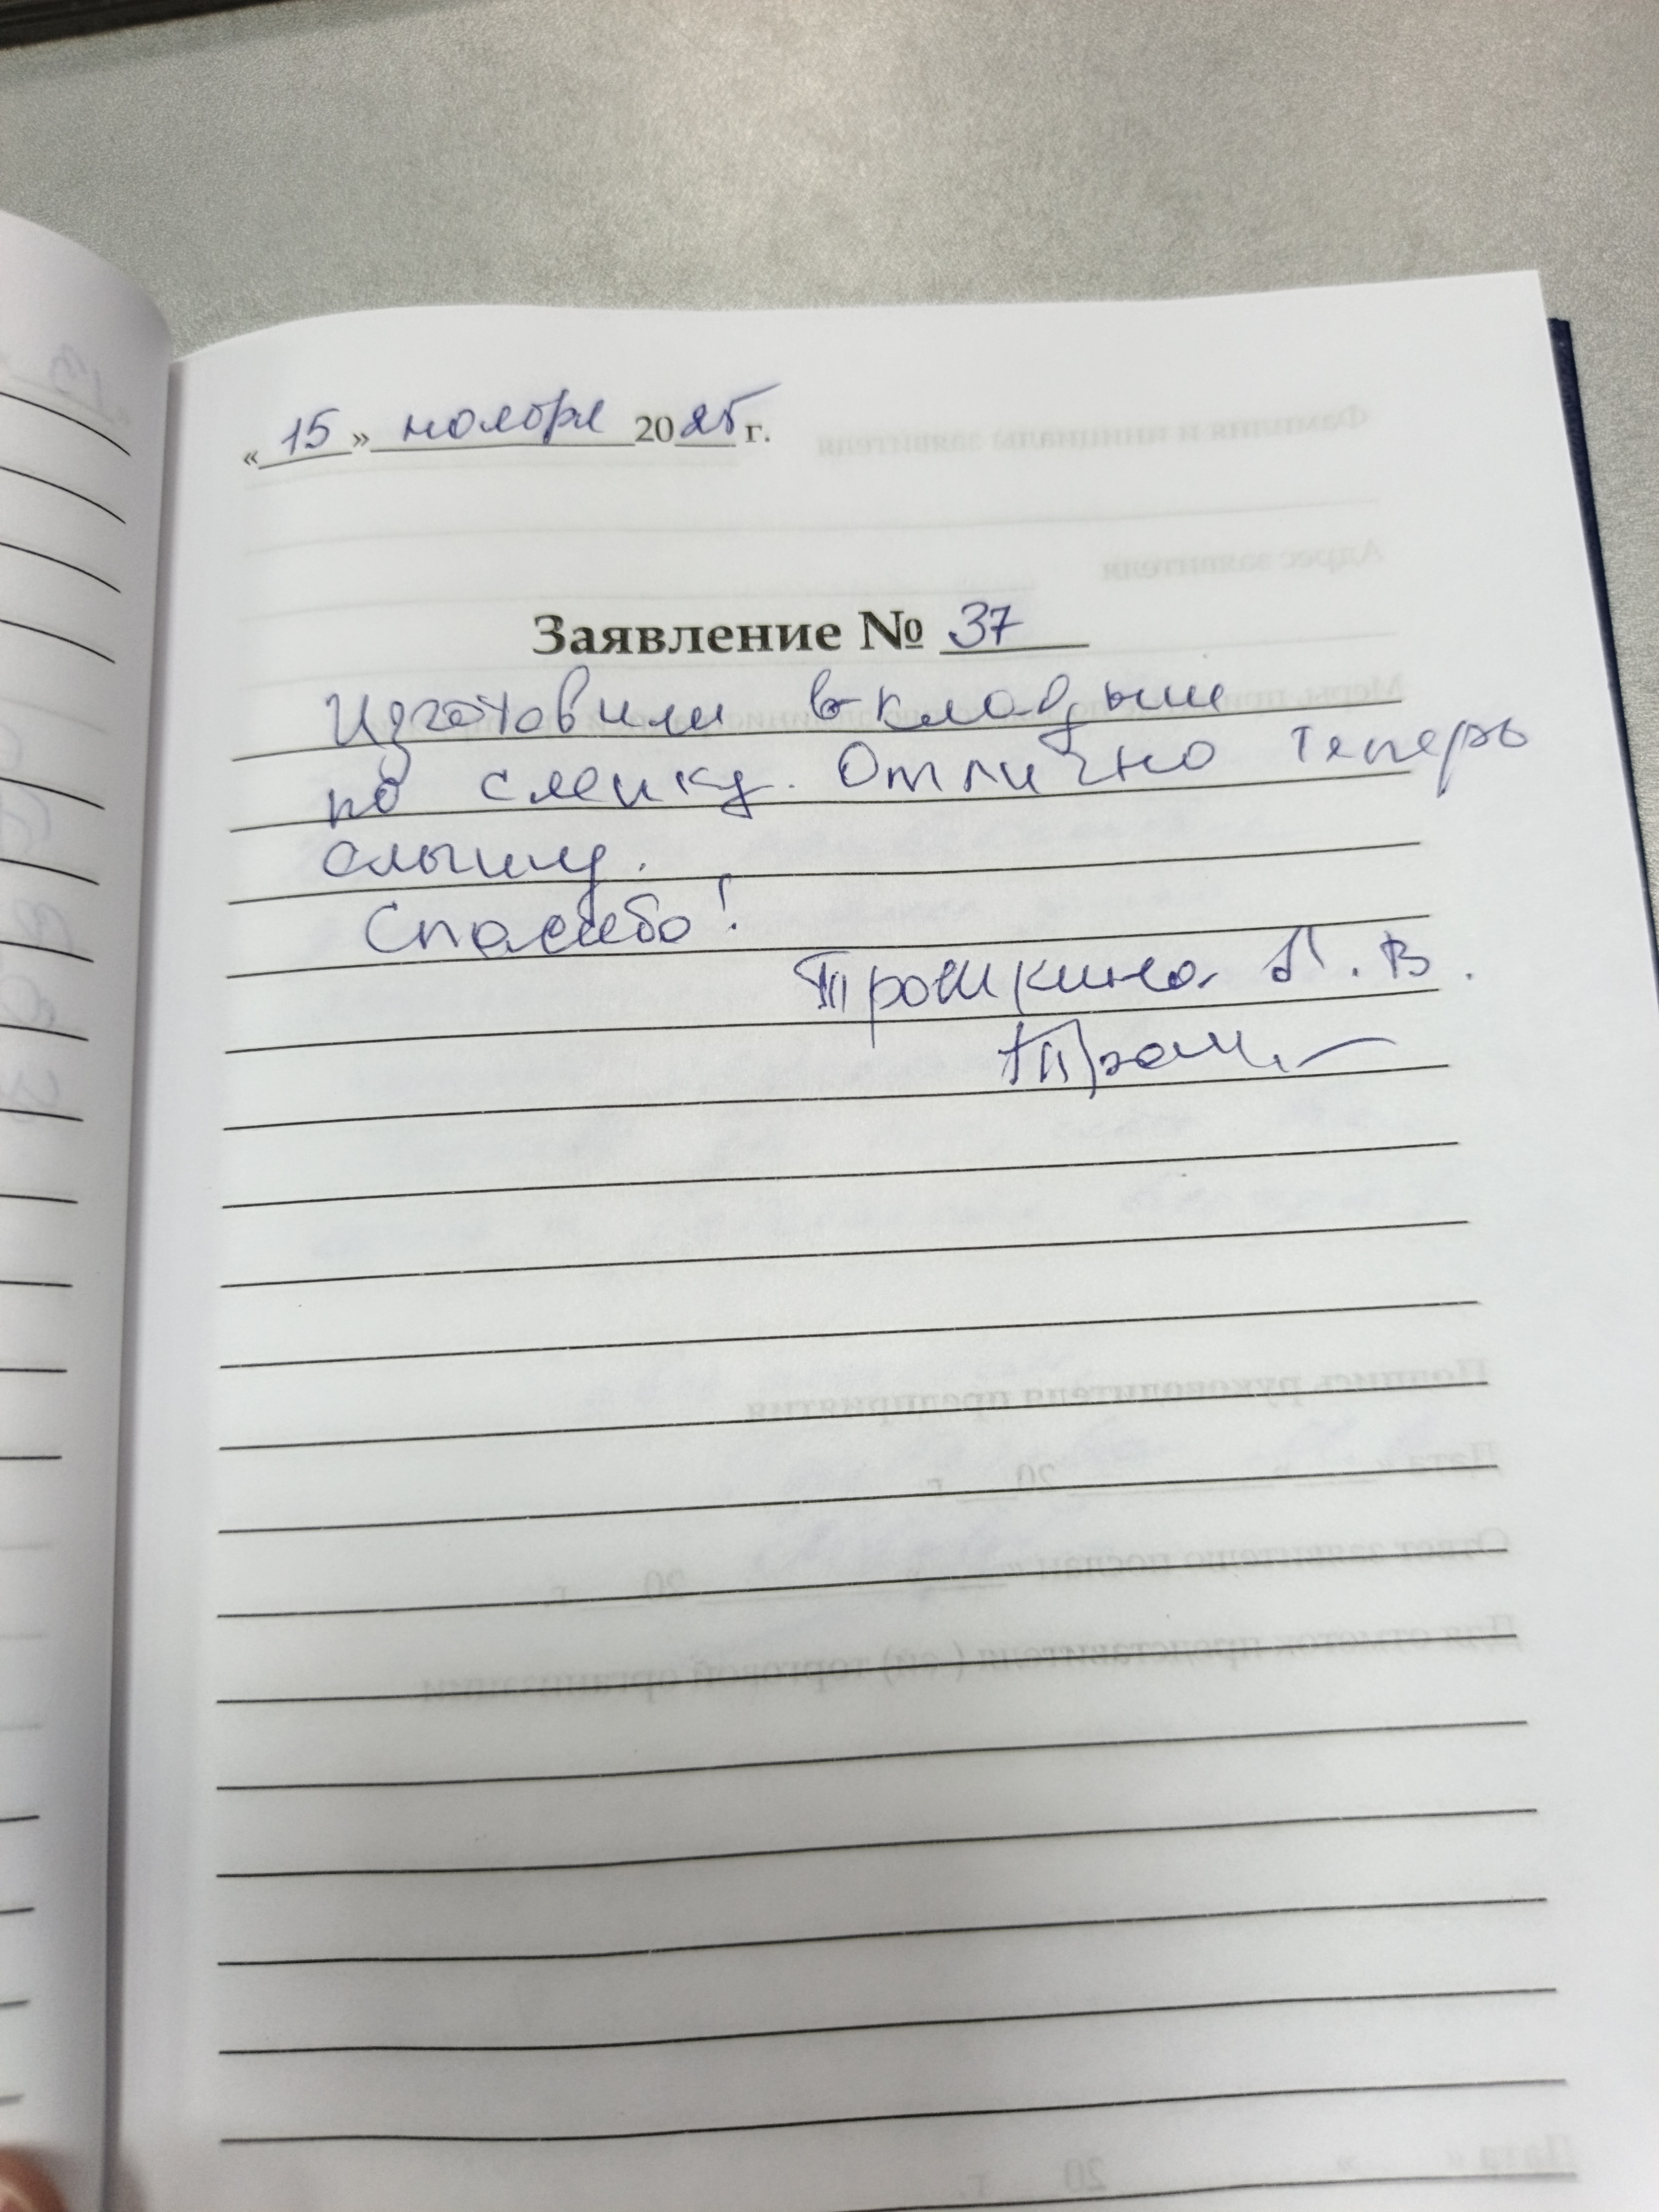 «15» ноября 2025 г.
Заявление № 37
Изготовили вкладыши
по слепку. Отлично теперь
слышу.
Спасибо!
Трошкина Л. В.